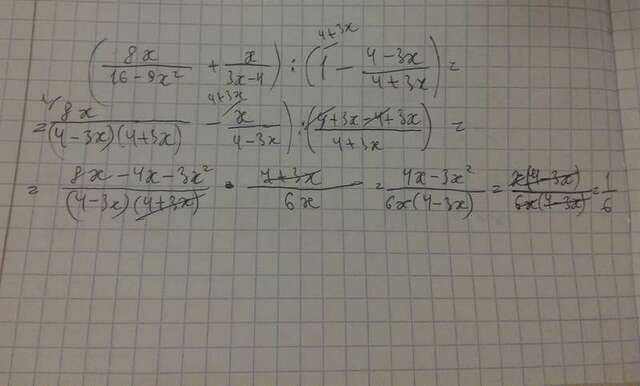 (8x/(16-9x²) + x/(3x-4)) : (1^(4+3x) - (4-3x)/(4+3x)) =
= (8x/((4-3x)(4+3x)) - x^(4+3x)/(4-3x)) : ((4+3x-4+3x)/(4+3x)) =
= (8x-4x-3x²)/((4-3x)(4+3x)) · (4+3x)/6x = (4x-3x²)/(6x(4-3x)) = x(4-3x)/(6x(4-3x)) = 1/6